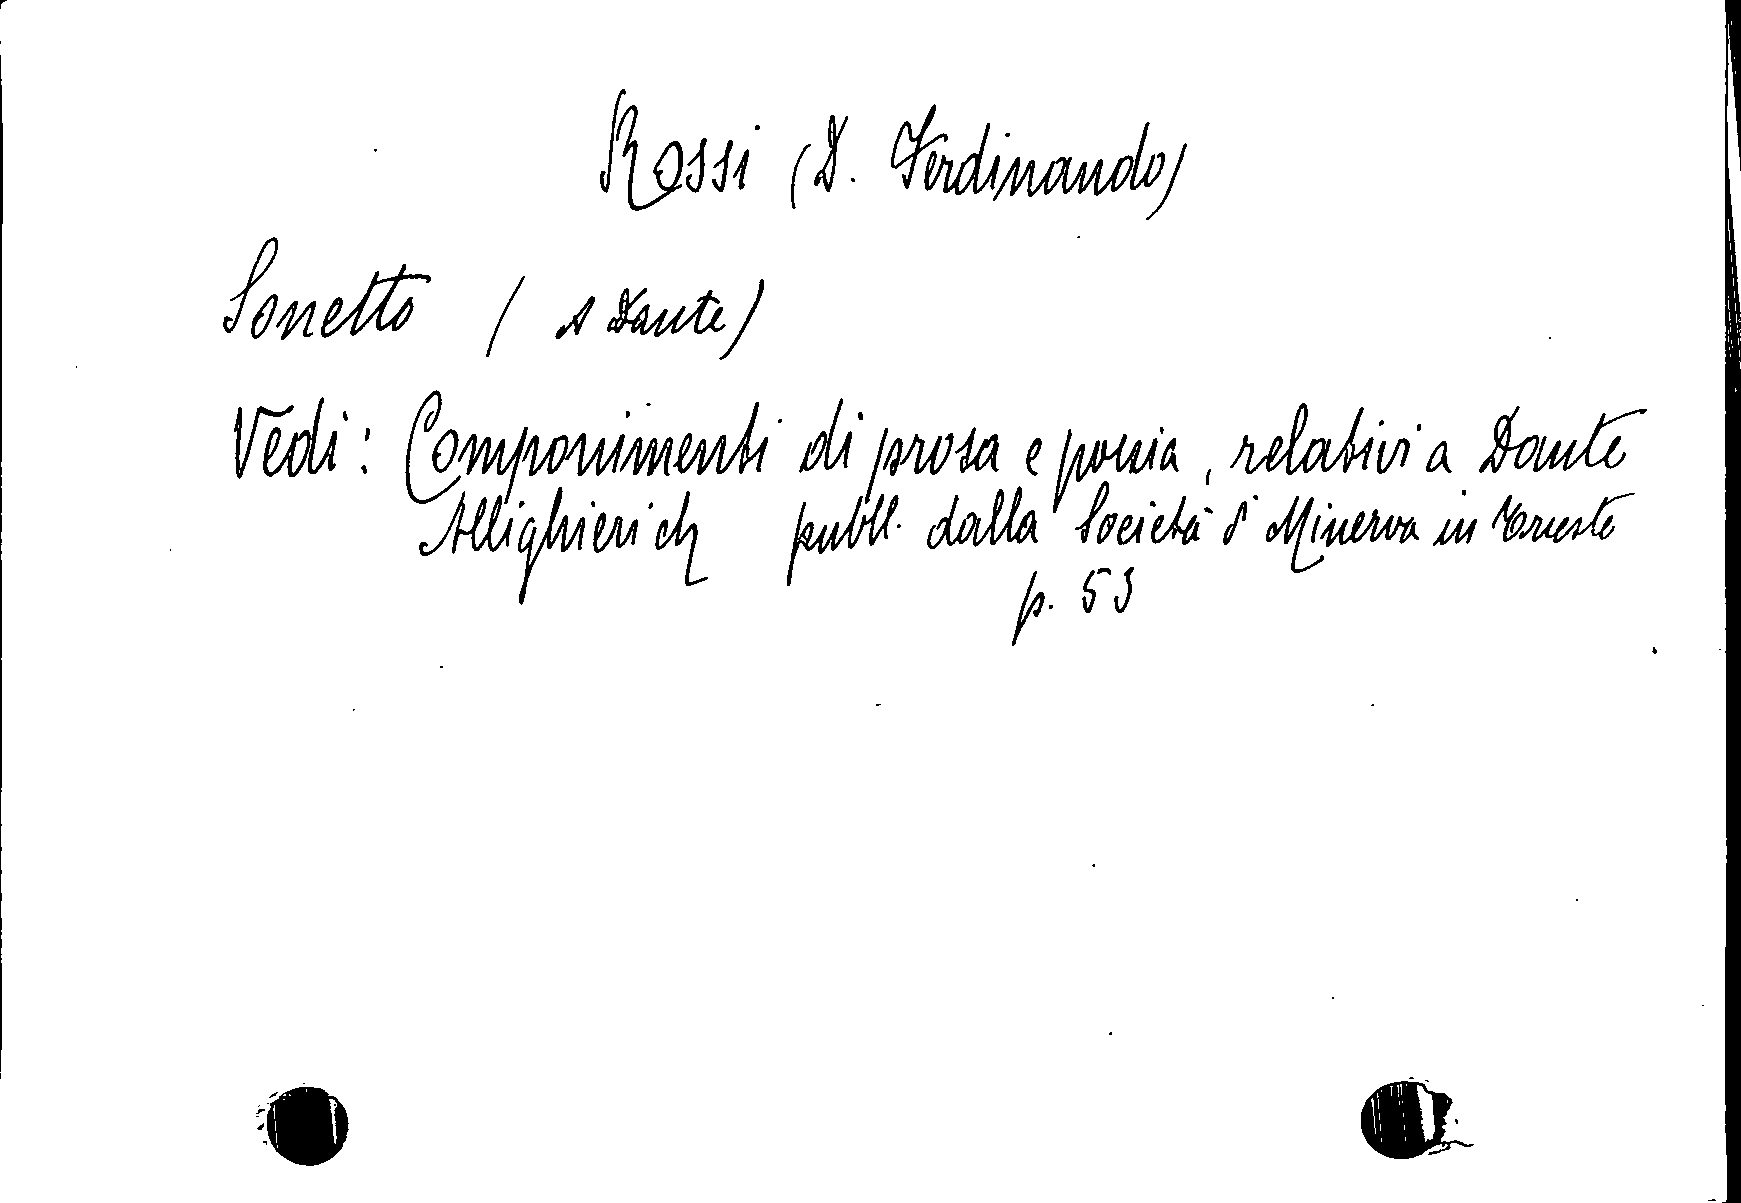 Rossi (D. Ferdinando)
Sonetto ( A Dante)
Vedi: Componimenti di prosa e poesia, relativi a Dante
Allighieri pubbl. dalla Società di Minerva in Trieste
p. 53